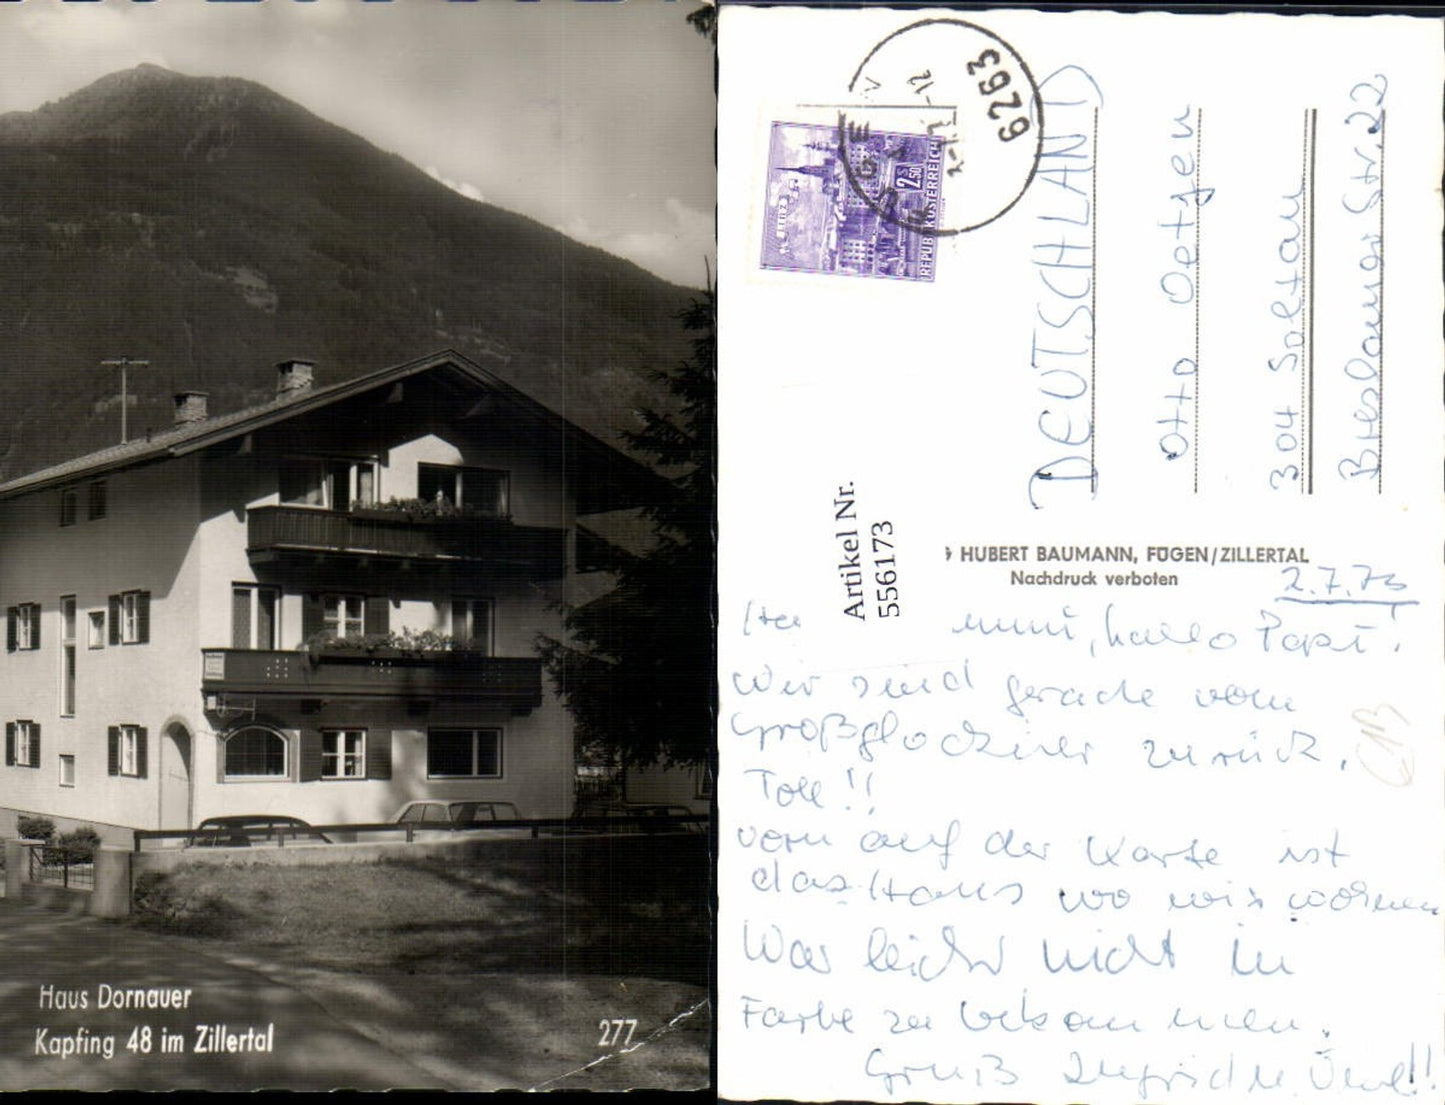 Haus Dornauer
Kapfing 48 im Zillertal
277
6263
2 S 50
REPUBLIK ÖSTERREICH
LINZ
DEUTSCHLAND
Otto Oetjen
304 Soltau
Breslauer Str. 22
Artikel Nr.
556173
HUBERT BAUMANN, FÜGEN/ZILLERTAL
Nachdruck verboten
2.7.73
Ha mmi, hallo Papi!
Wir sind gerade vom
Großglockner zurück.
Toll!!
vorn auf der Karte ist
das Haus wo wir wohnen
War leider nicht in
Farbe zu bekommen.
Gruß Ingrid u. Uwe!!